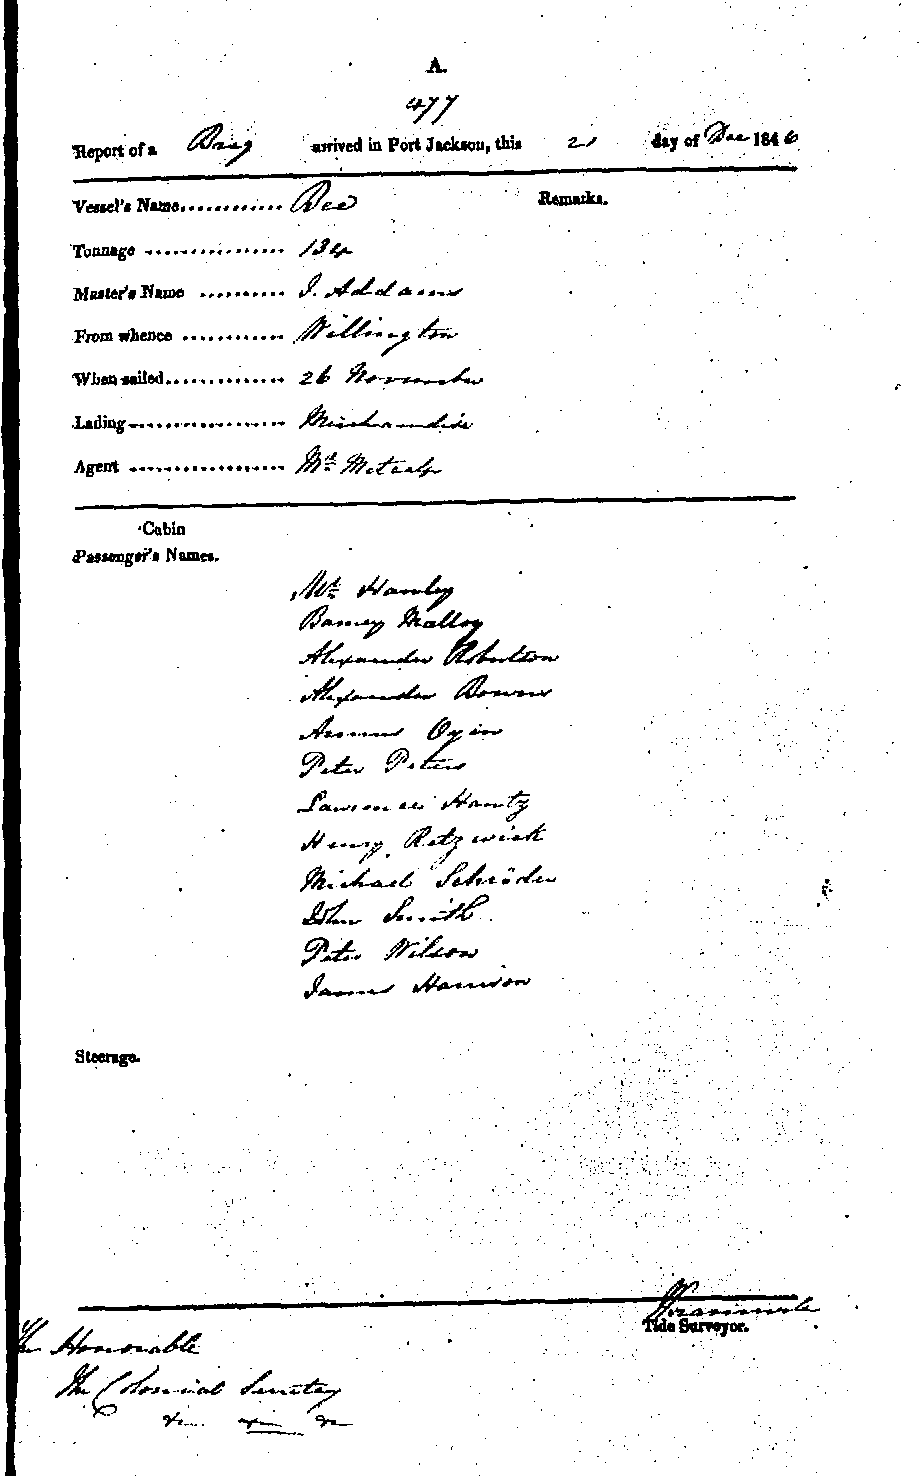 A.
477
Report of a Brig arrived in Port Jackson, this 21 day of Dec 1846
Vessel's Name Bee
Remarks.
Tonnage 134
Master's Name J. Addams
From whence Willington
When sailed 26 November
Lading Merchandise
Agent Mr Metcalf
Cabin
Passenger's Names.
Mr Hamley
Barney Malloy
Alexander Robertson
Alexander Bowens
Peter Peters
Lawrence Hantz
Henry Retzwick
Michael Schröder
John Smith
Peter Wilson
James Harrison
Steerage.
Tide Surveyor.
The Honorable
The Colonial Secretary
&c &c &c